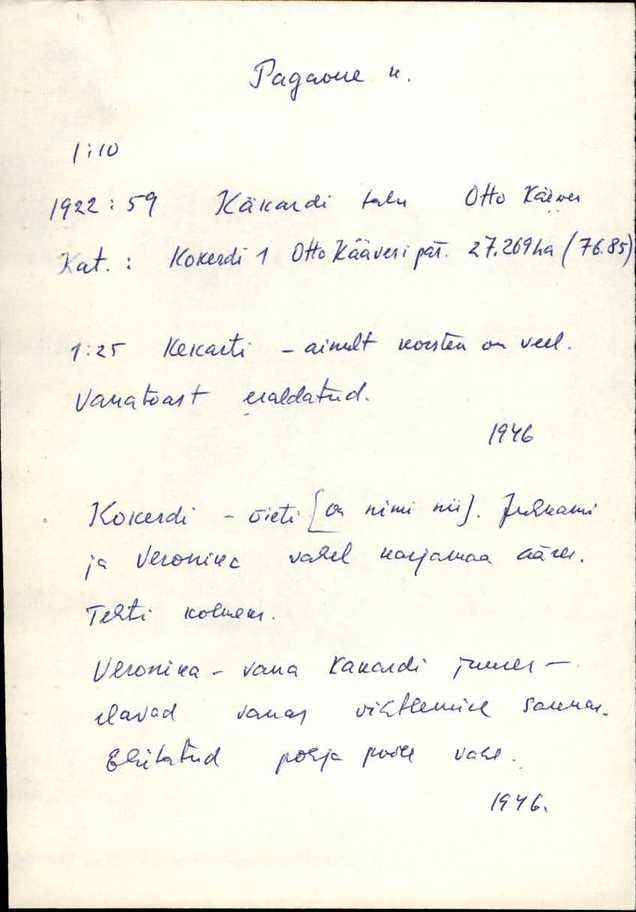 Pagaone k.
1:10
1922:59 Käkardi talu Otto Kääver
Kat.: Kokerdi 1 Otto Kääveri pär. 27.269ha (76.85)
1:25 Kekarti – ainult korsten on veel.
Vanatoast eraldatud.
1946
Kokerdi – õieti [on nimi nii]. Juhkami
ja Veronika vahel karjamaa ääres.
Tehti kolmeks.
Veronika – vana Kakardi juures –
elavad vanas vihtlemise saunas.
Ehitatud põhja poole
1946.